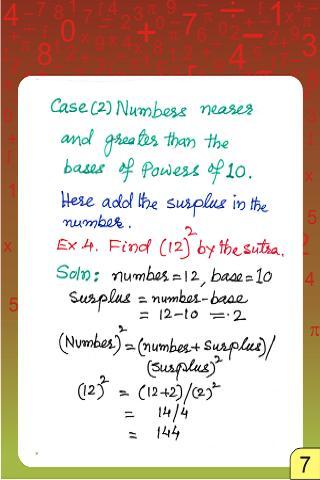 Case(2) Numbers nearer
and greater than the
bases of Powers of 10.
Here add the surplus in the
number.
Ex 4. Find (12)² by the sutra.
Soln: number = 12, base = 10
Surplus = number - base
= 12-10 = 2
(Number)² = (number + Surplus)/
(surplus)²
(12)² = (12+2)/(2)²
= 14/4
= 144
7